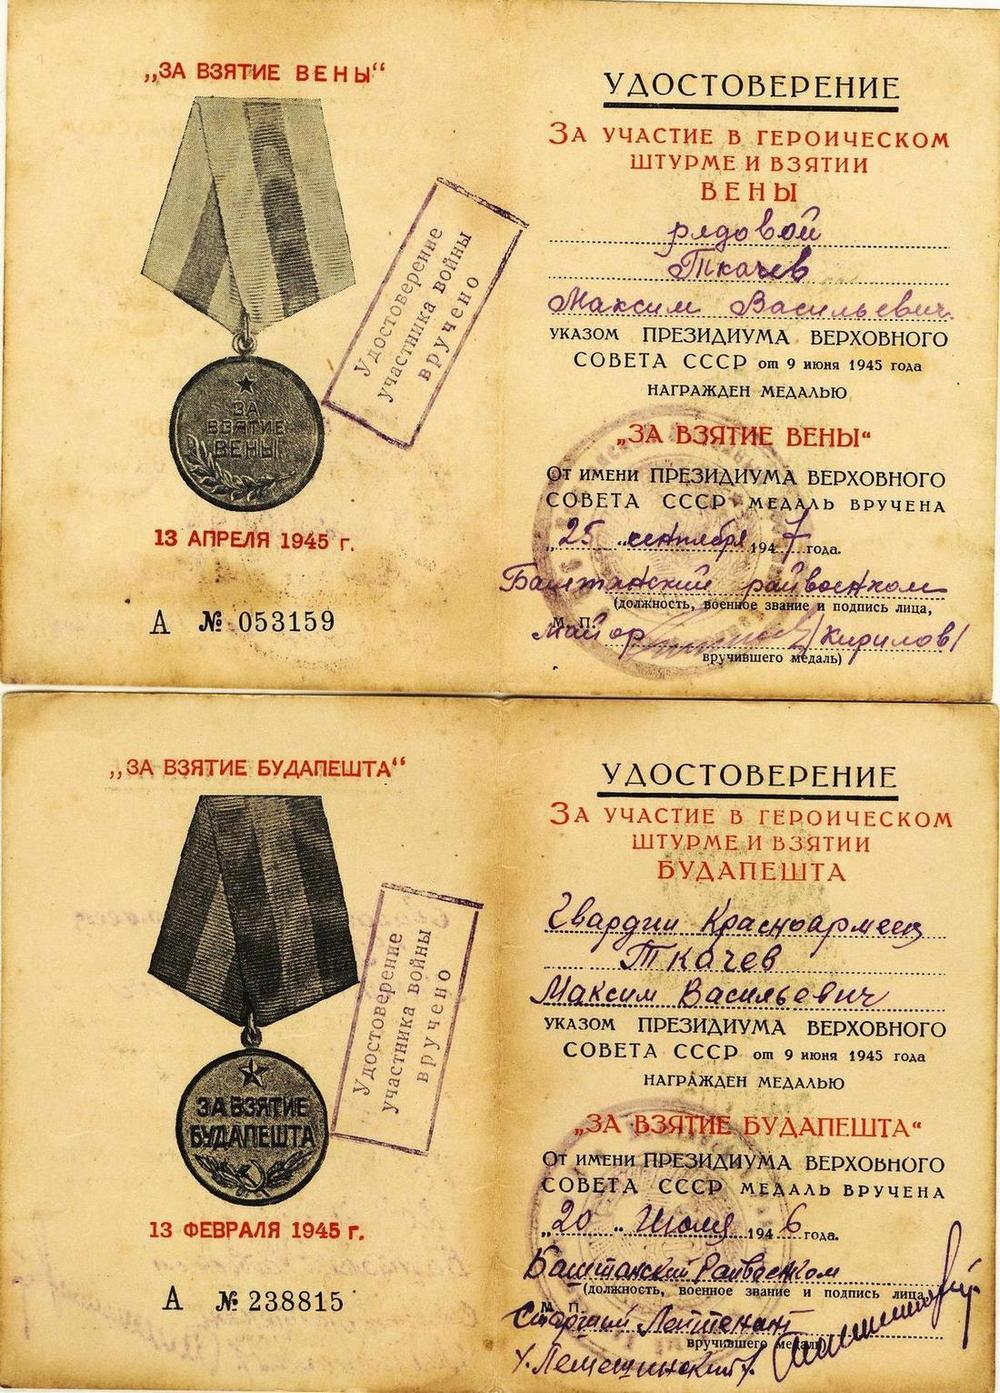 „ЗА ВЗЯТИЕ ВЕНЫ“
ЗА
ВЗЯТИЕ
ВЕНЫ
13 АПРЕЛЯ 1945 г.
А № 053159
Удостоверение
участника войны
вручено
УДОСТОВЕРЕНИЕ
ЗА УЧАСТИЕ В ГЕРОИЧЕСКОМ
ШТУРМЕ И ВЗЯТИИ
ВЕНЫ
рядовой
Ткачев
Максим Васильевич
УКАЗОМ ПРЕЗИДИУМА ВЕРХОВНОГО
СОВЕТА СССР от 9 июня 1945 года
НАГРАЖДЕН МЕДАЛЬЮ
„ЗА ВЗЯТИЕ ВЕНЫ“
ОТ ИМЕНИ ПРЕЗИДИУМА ВЕРХОВНОГО
СОВЕТА СССР МЕДАЛЬ ВРУЧЕНА
„25“ сентября 1947 года.
Баштанский райвоенком
(должность, военное звание и подпись лица,
М. П.
Майор /Кирилов/
вручившего медаль)
„ЗА ВЗЯТИЕ БУДАПЕШТА“
ЗА ВЗЯТИЕ
БУДАПЕШТА
13 ФЕВРАЛЯ 1945 г.
А № 238815
Удостоверение
участника войны
вручено
УДОСТОВЕРЕНИЕ
ЗА УЧАСТИЕ В ГЕРОИЧЕСКОМ
ШТУРМЕ И ВЗЯТИИ
БУДАПЕШТА
Гвардии Красноармеец
Ткачев
Максим Васильевич
УКАЗОМ ПРЕЗИДИУМА ВЕРХОВНОГО
СОВЕТА СССР от 9 июня 1945 года
НАГРАЖДЕН МЕДАЛЬЮ
„ЗА ВЗЯТИЕ БУДАПЕШТА“
ОТ ИМЕНИ ПРЕЗИДИУМА ВЕРХОВНОГО
СОВЕТА СССР МЕДАЛЬ ВРУЧЕНА
„20“ Июля 1946 года.
Баштанский Райвоенком
(должность, военное звание и подпись лица,
М. П.
Старший Лейтенант
вручившего медаль)